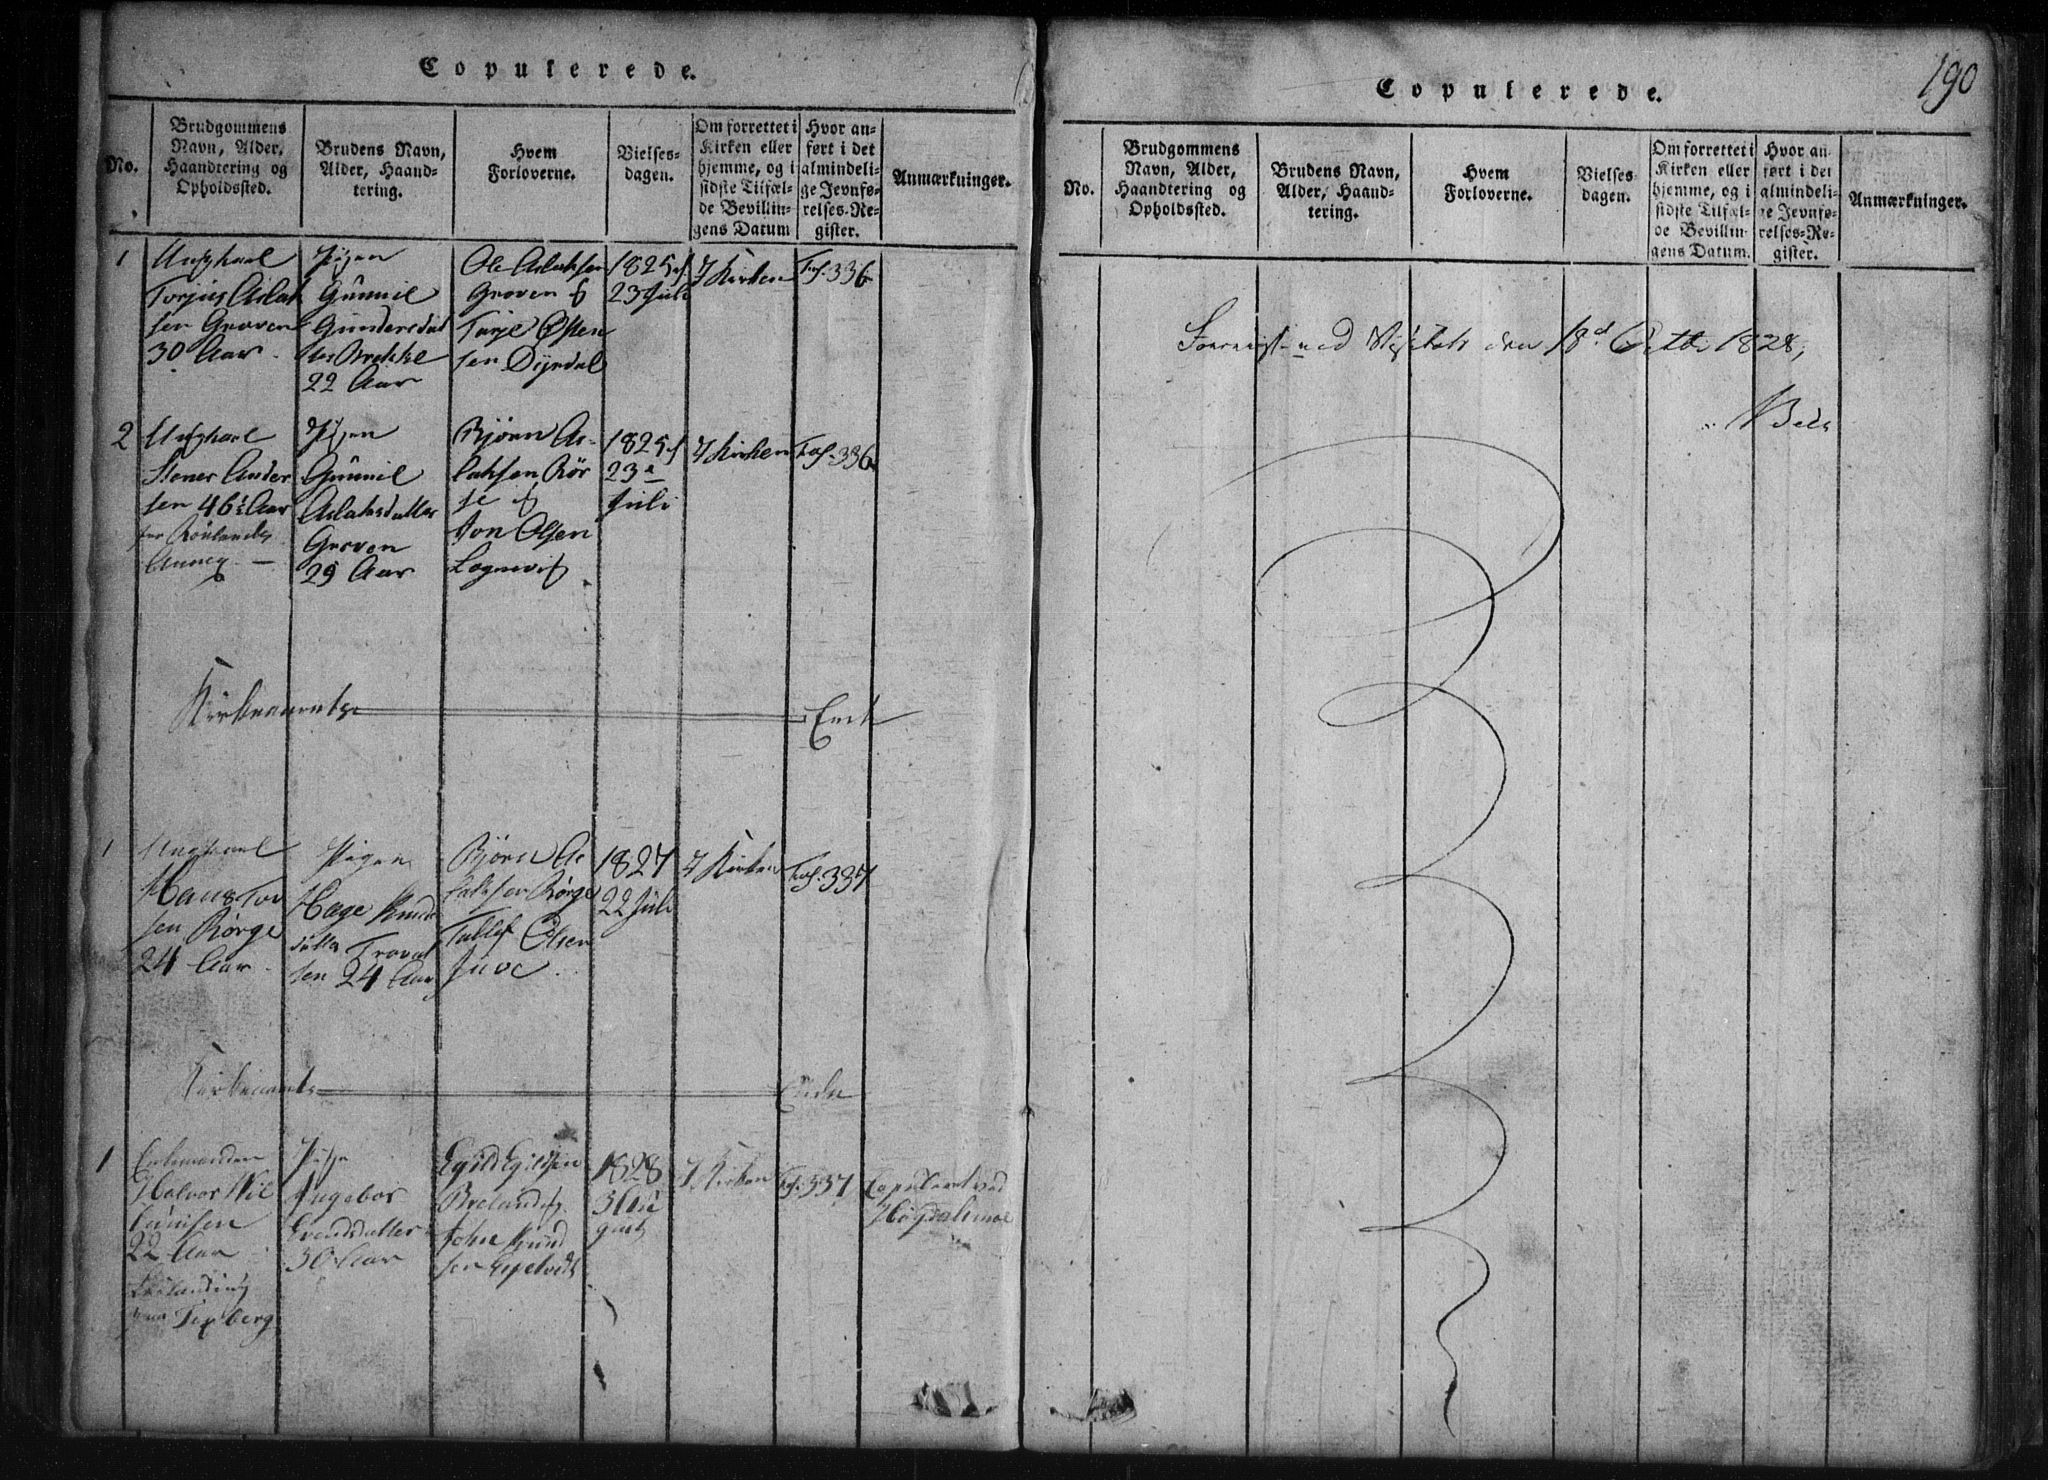 Copulerede.
No.
Brudgommens
Navn, Alder,
Haandtering og
Opholdssted.
Brudens Navn,
Alder, Haand-
tering.
Hvem
Forloverne.
Vielses-
dagen.
Om forrettet i
Kirken eller
hjemme, og i
sidste Tilfæl-
de Bevillin-
gens Datum
Hvor an-
ført i det
almindeli-
ge Jevnfø-
relses-Re-
gister.
Anmærkninger.
1
Ungkarl
Torjus Aslak
sen Groven
30 Aar.
Pigen
Gunnil
Gundersdat
ter Brekke
22 Aar
Ole Aslaksen
Groven &
Tarje Østen
sen Dyrdal
1825
23 Juli
I Kirken
Fol. 336
2
Ungkarl
Stener Ander
sen 46½ Aar
Annex —
Pigen
Gunnil
Aslaksdatter
Groven
29 Aar
Bjørn As-
laksen Rør
ge &
Jon Olsen
Lognvig
1825
23de
Juli
I Kirken
Fol. 336
Ende
1
Ungkarl
Hans Tov
sen Rørge
24 Aar.
Pigen
Hage Knuds
datter
24 Aar
Bjørn As
laksen Rørge
Tallef Olsen
Juve
1827
22 Juli
I Kirken
Fol. 337
Ende
1
Enkemanden
Halvor Nil
22 Aar
Pige
Ingebor
30 Aar
Egild Egildsen
Brelands
John Knud
sen
1828
3 Au
gust
I Kirken
Fol. 337
Copuleret ved
Høydalsmoe
Copulerede.
190
No.
Brudgommens
Navn, Alder,
Haandtering og
Opholdssted.
Brudens Navn,
Alder, Haand-
tering.
Hvem
Forloverne.
Vielses-
dagen.
Om forrettet i
Kirken eller
hjemme, og i
sidste Tilfæl-
de Bevillin-
gens Datum.
Hvor an-
ført i det
almindeli-
ge Jevnfø-
relses-Re-
gister.
Anmærkninger.
Foreviist ved Visitats den 18d Octbr 1828,